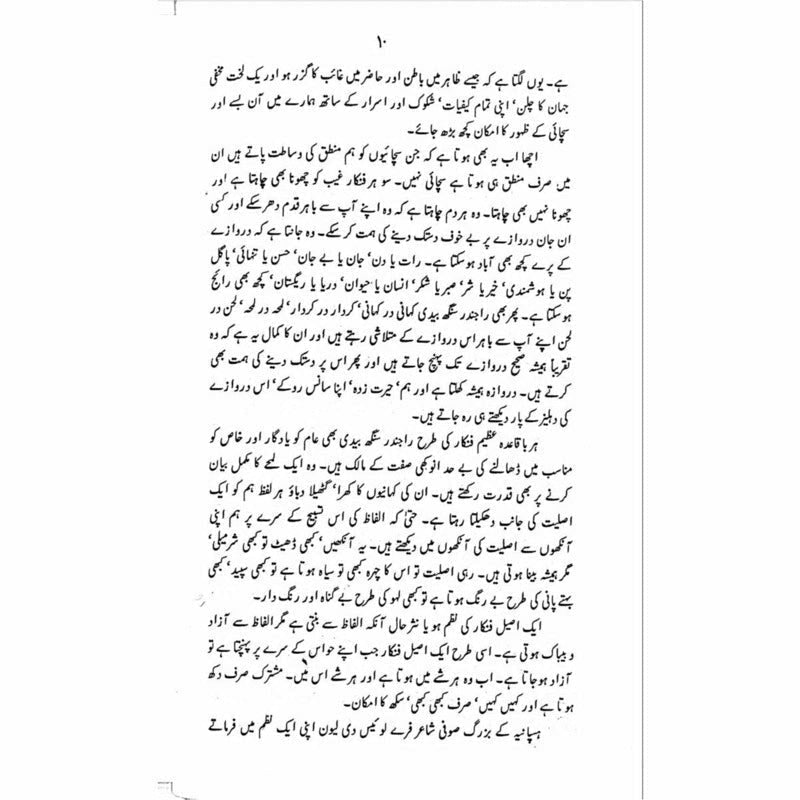 ۱۰
ہے۔ یوں لگتا ہے کہ جیسے ظاہر میں باطن اور حاضر میں غائب کا گزر ہو اور یک لخت مخفی
جہان کا چلن‘ اپنی تمام کیفیات‘ شکوک اور اسرار کے ساتھ ہمارے میں آن بسے اور
سچائی کے ظہور کا امکان کچھ بڑھ جائے۔
اچھا اب یہ بھی ہوتا ہے کہ جن سچائیوں کو ہم منطق کی وساطت پاتے ہیں ان
میں صرف منطق ہی ہوتا ہے سچائی نہیں۔ سو ہر فنکار غیب کو چھونا بھی چاہتا ہے اور
چھونا نہیں بھی چاہتا۔ وہ ہر دم چاہتا ہے کہ وہ اپنے آپ سے باہر قدم دھر سکے اور کسی
ان جان دروازے پر بے خوف دستک دینے کی ہمت کر سکے۔ وہ جانتا ہے کہ دروازے
کے پرے کچھ بھی آباد ہو سکتا ہے۔ رات یا دن‘ جان یا بے جان‘ حسن یا تنہائی‘ پاگل
پن یا ہوشمندی‘ خیر یا شر‘ صبر یا شکر‘ انسان یا حیوان‘ دریا یا ریگستان‘ کچھ بھی رائج
ہو سکتا ہے۔ پھر بھی راجندر سنگھ بیدی کہانی در کہانی‘ کردار در کردار‘ لمحہ در لمحہ‘ لحن در
لحن اپنے آپ سے باہر اس دروازے کے متلاشی رہتے ہیں اور ان کا کمال یہ ہے کہ وہ
تقریباً ہمیشہ صحیح دروازے تک پہنچ جاتے ہیں اور پھر اس پر دستک دینے کی ہمت بھی
کرتے ہیں۔ دروازہ ہمیشہ کھلتا ہے اور ہم‘ حیرت زدہ‘ اپنا سانس روکے‘ اس دروازے
کی دہلیز کے پار دیکھتے ہی رہ جاتے ہیں۔
ہر باقاعدہ عظیم فنکار کی طرح راجندر سنگھ بیدی بھی عام کو یادگار اور خاص کو
مناسب میں ڈھالنے کی بے حد انوکھی صفت کے مالک ہیں۔ وہ ایک لمحے کا مکمل بیان
کرنے پر بھی قدرت رکھتے ہیں۔ ان کی کہانیوں کا کھرا‘ گٹھیلا دباؤ ہر لفظ ہم کو ایک
اصلیت کی جانب دھکیلتا رہتا ہے۔ حتیٰ کہ الفاظ کی اس تسبیح کے سرے پر ہم اپنی
آنکھوں سے اصلیت کی آنکھوں میں دیکھتے ہیں۔ یہ آنکھیں‘ کبھی ڈھیٹ تو کبھی شرمیلی‘
مگر ہمیشہ بینا ہوتی ہیں۔ رہی اصلیت تو اس کا چہرہ کبھی تو سیاہ ہوتا ہے تو کبھی سپید‘ کبھی
بہتے پانی کی طرح بے رنگ ہوتا ہے تو کبھی لہو کی طرح بے گناہ اور رنگ دار۔
ایک اصیل فنکار کی نظم ہو یا نثر حال آنکہ الفاظ سے بنتی ہے مگر الفاظ سے آزاد
و بیباک ہوتی ہے۔ اسی طرح ایک اصیل فنکار جب اپنے حواس کے سرے پر پہنچتا ہے تو
آزاد ہو جاتا ہے۔ اب وہ ہر شے میں ہوتا ہے اور ہر شے اس میں۔ مشترک صرف دکھ
ہوتا ہے اور کہیں کہیں‘ صرف کبھی کبھی‘ سکھ کا امکان۔
ہسپانیہ کے بزرگ صوفی شاعر فرے لوئیس دی لیون اپنی ایک نظم میں فرماتے